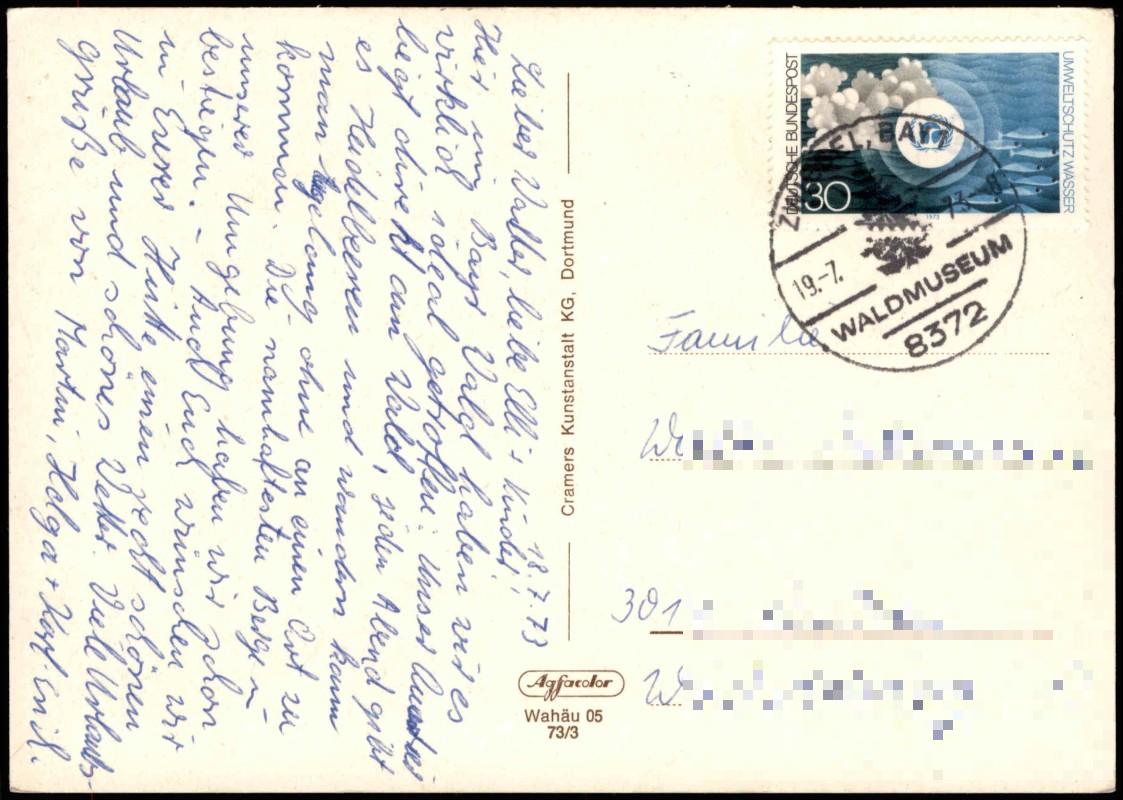 18.7.73
Liebes Walter, liebe Elli + Kinder!
Hier im Bayr Wald haben wir es
wirklich ideal getroffen. Unser Quartier
liegt direkt am Wald, jeden Abend gibt
es Heidelbeeren und wandern kann
man lang ohne an einen Ort zu
kommen. Die namhaftesten Berge in
unserer Umgebung haben wir schon
bestiegen. - Auch Euch wünschen wir
in Eurer Hütte einen recht schönen
Urlaub und schönes Wetter. Viele Urlaubs-
grüße von Martin, Helga + Karl-Emil.
Cramers Kunstanstalt KG, Dortmund
Agfacolor
Wahäu 05
73/3
DEUTSCHE BUNDESPOST
UMWELTSCHUTZ WASSER
30
1973
EL, BAY
19.-7.
73
WALDMUSEUM
8372
Familie
301